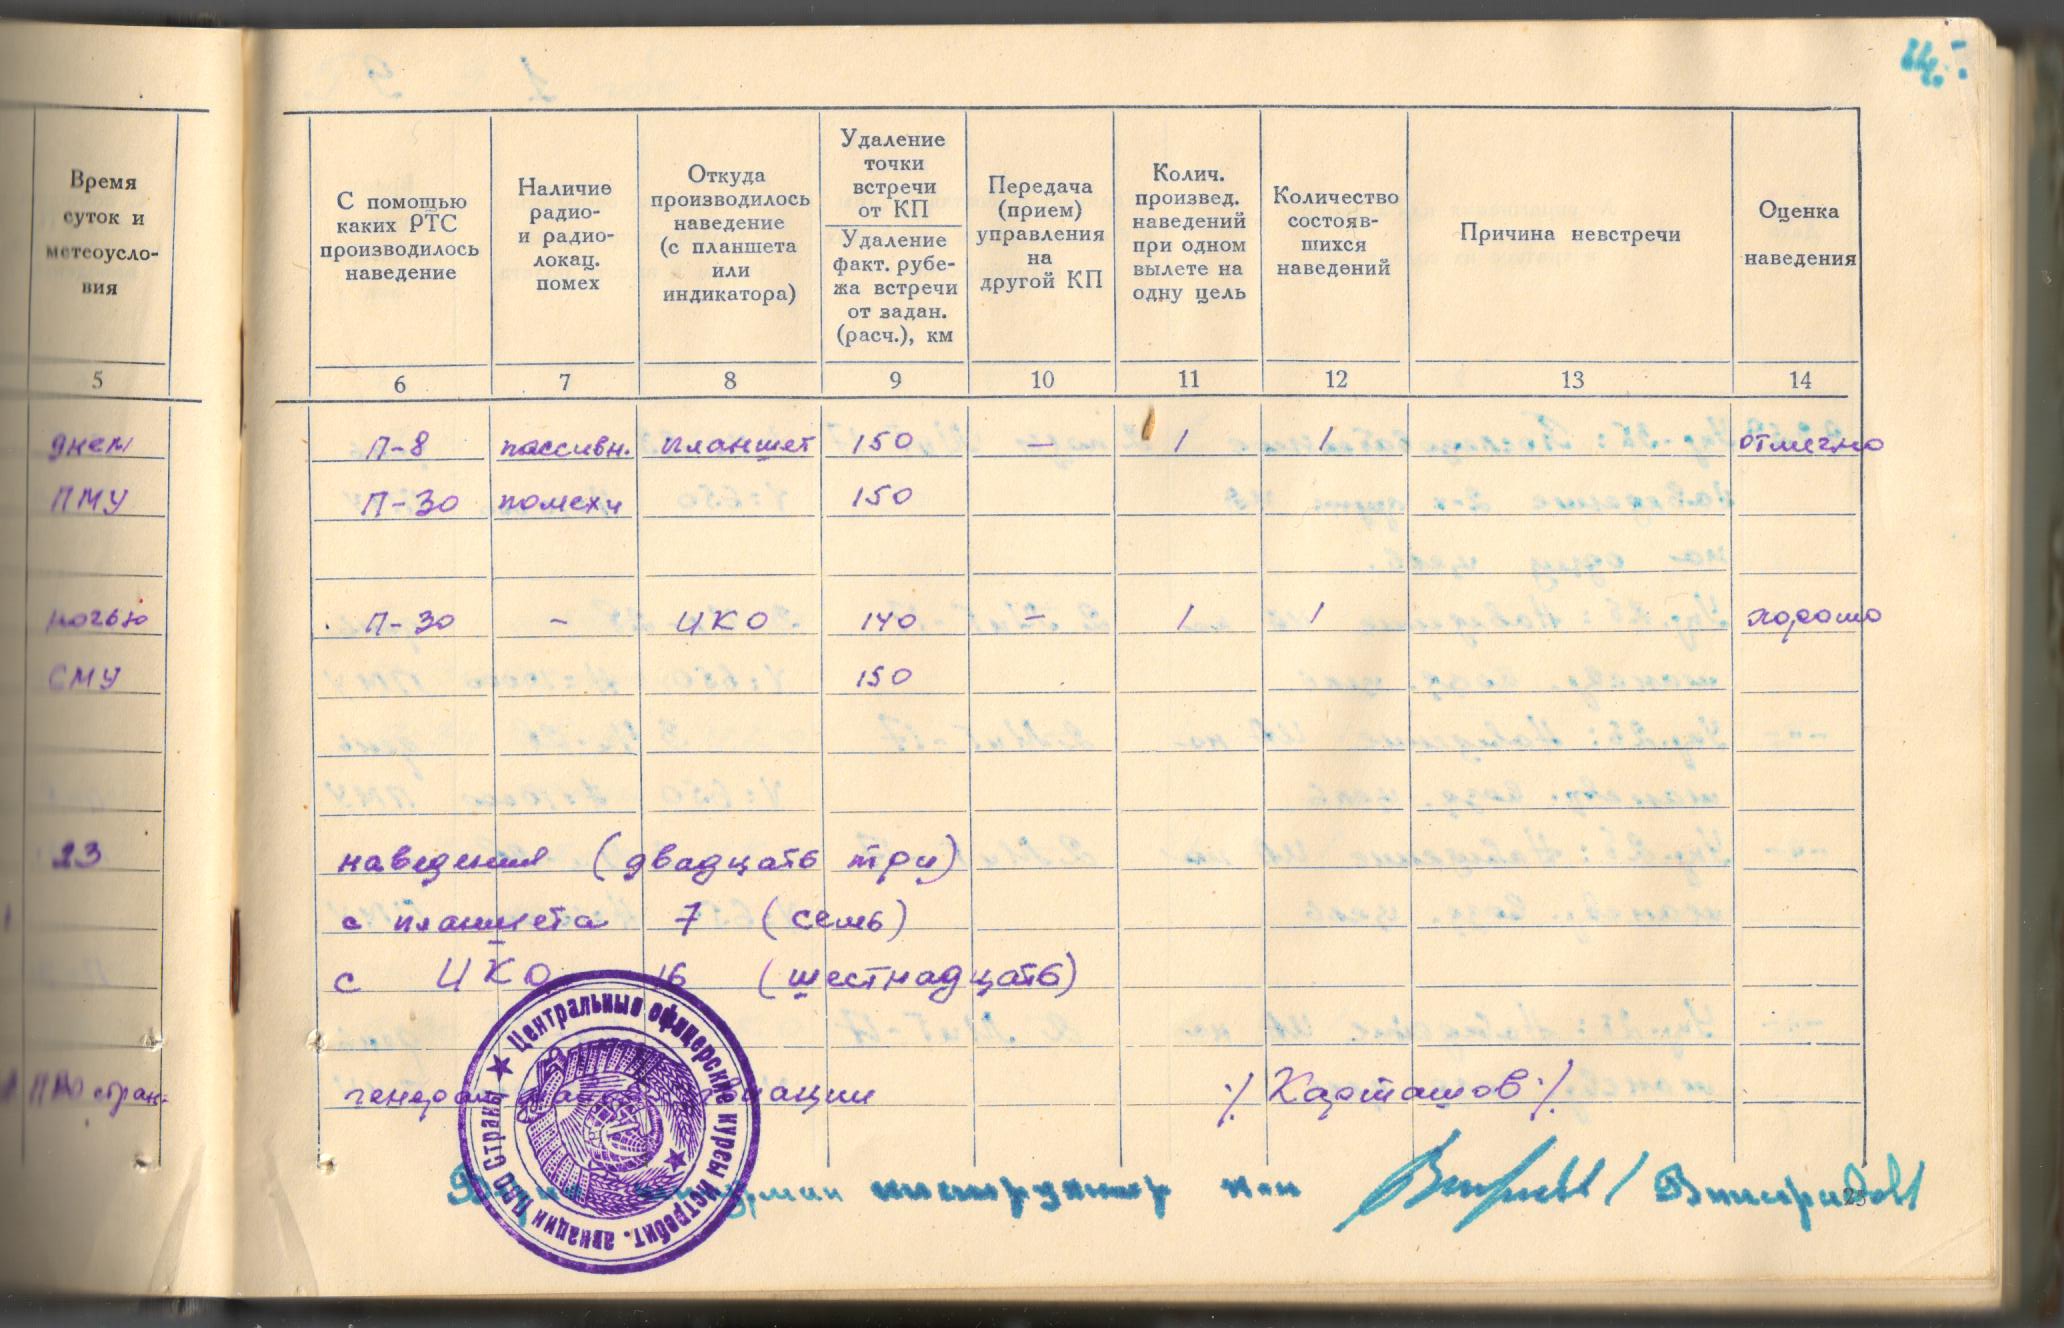 Время
суток и
метеоусло-
вия
С помощью
каких РТС
производилось
наведение
Наличие
радио-
и радио-
локац.
помех
Откуда
производилось
наведение
(с планшета
или
индикатора)
Удаление
точки
встречи
от КП
Удаление
факт. рубе-
жа встречи
от задан.
(расч.), км
Передача
(прием)
управления
на
другой КП
Колич.
произвед.
наведений
при одном
вылете на
одну цель
Количество
состояв-
шихся
наведений
Причина невстречи
Оценка
наведения
5 6 7 8 9 10 11 12 13 14
днем П-8 пассивн. планшет 150 — 1 1 отлично
ПМУ П-30 помехи 150
ночью П-30 — ИКО 140 — 1 1 хорошо
СМУ 150
23 наведения (двадцать три)
с планшета 7 (семь)
с ИКО 16 (шестнадцать)
ПВО стран- генерал авиации /Карташов/
штурман инструктор п-п
Центральные офицерские курсы истребит. авиации ПВО Страны
25